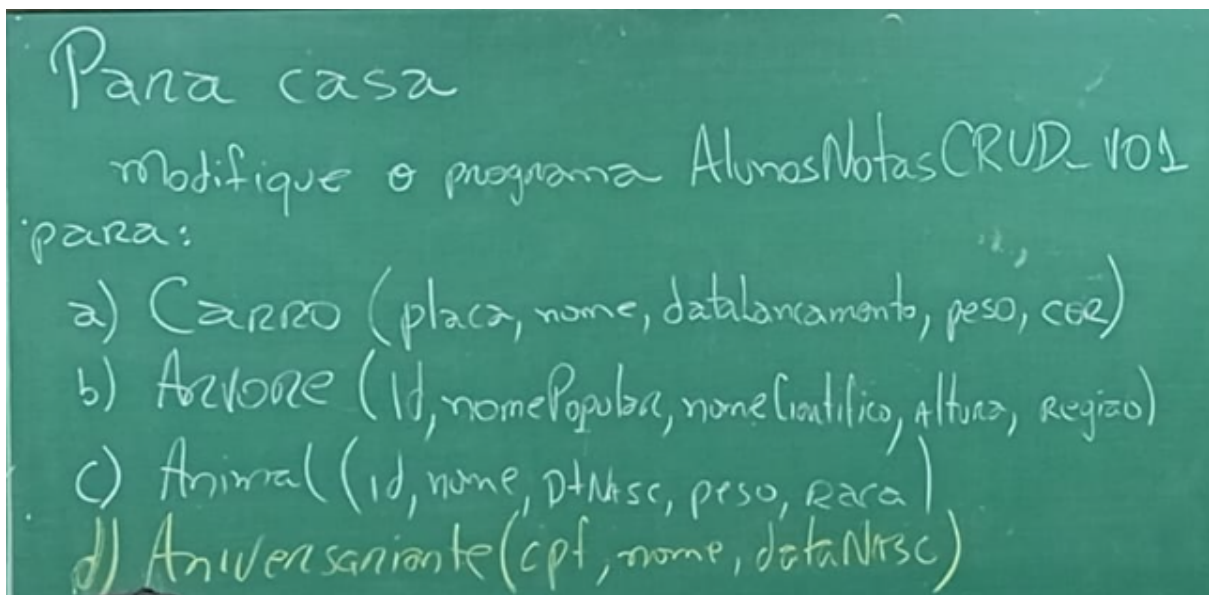 Para casa
modifique o programa AlunosNotasCRUD_V01
para:
a) Carro (placa, nome, datalancamento, peso, cor)
b) Arvore (Id, nomePopular, nomeCientifico, Altura, Região)
c) Animal (id, nome, DtNasc, peso, Raca)
d) Aniversariante (cpf, nome, dataNasc)